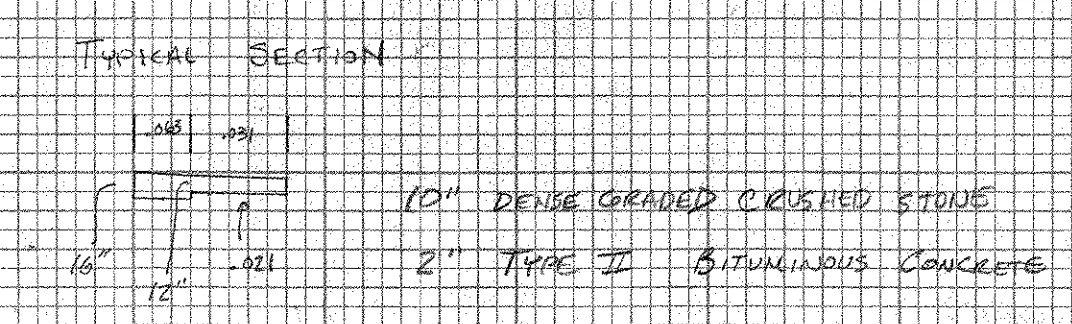 TYPICAL SECTION
.063 .031
10" DENSE GRADED CRUSHED STONE
16" .021 2" TYPE II BITUMINOUS CONCRETE
12"